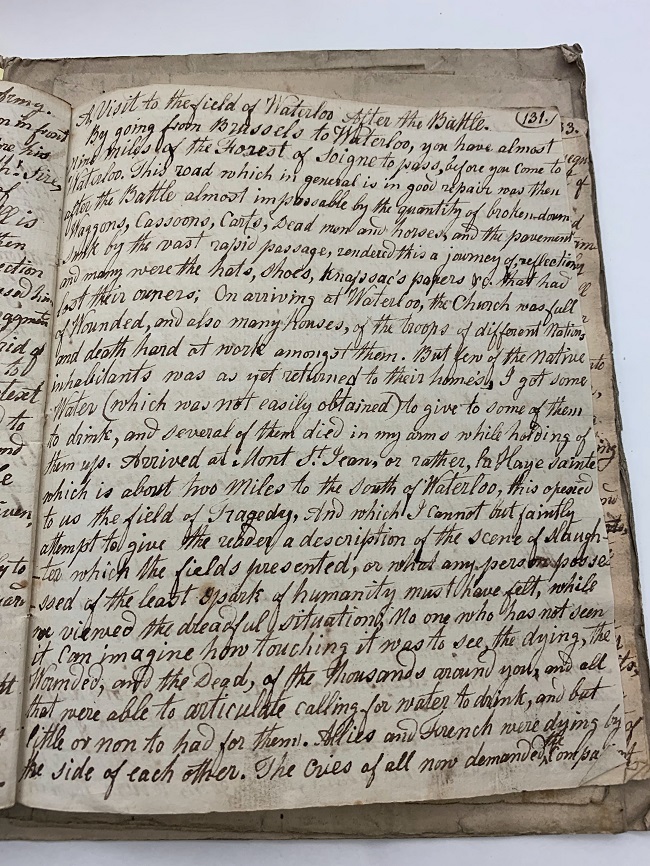 A Visit to the field of Waterloo After the Battle. (131.)
By going from Brussels to Waterloo, you have almost
nine Miles of the Forest of Soigne to pass, before you come to
Waterloo. This road which in general is in good repair was then
after the Battle almost impassable by the quantity of broken-down
Waggons, Cassoons, Carts, Dead men and horses, and the pavement
sunk by the vast rapid passage, rendered this a journey of reflection,
and many were the hats, shoes, knapsac's papers &c. that had
lost their owners; On arriving at Waterloo, the Church was full
of Wounded, and also many houses, of the troops of different Nations
and death hard at work amongst them. But few of the native
inhabitants was as yet returned to their home's, I got some
Water (which was not easily obtained) to give to some of them
to drink, and several of them died in my arms while holding of
them up. Arrived at Mont St. Jean, or rather, la Haye Sainte
which is about two Miles to the South of Waterloo, this opened
to us the field of Tragedy, And which I cannot but faintly
attempt to give the reader a description of the scene of slaugh-
-ter which the fields presented, or what any person posse-
-ssed of the least spark of humanity must have felt, while
we viewed the dreadful situation, No one who has not seen
it can imagine how touching it was to see, the dying, the
Wounded, and the Dead, of the thousands around you, and all
that were able to articulate calling for water to drink, and but
little or non to had for them. Allies and French were dying by
the side of each other. The Cries of all now demanded the Compa